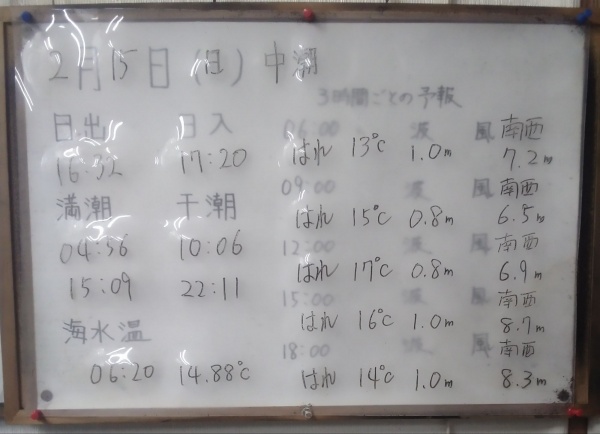 2月15日(日) 中潮
3時間ごとの予報
日出 日入
16:32 17:20
満潮 干潮
04:56 10:06
15:09 22:11
海水温
06:20 14.88℃
06:00 波 風 南西
はれ 13℃ 1.0m 7.2m
09:00 波 風 南西
はれ 15℃ 0.8m 6.5m
12:00 波 風 南西
はれ 17℃ 0.8m 6.9m
15:00 波 風 南西
はれ 16℃ 1.0m 8.7m
18:00 波 風 南西
はれ 14℃ 1.0m 8.3m